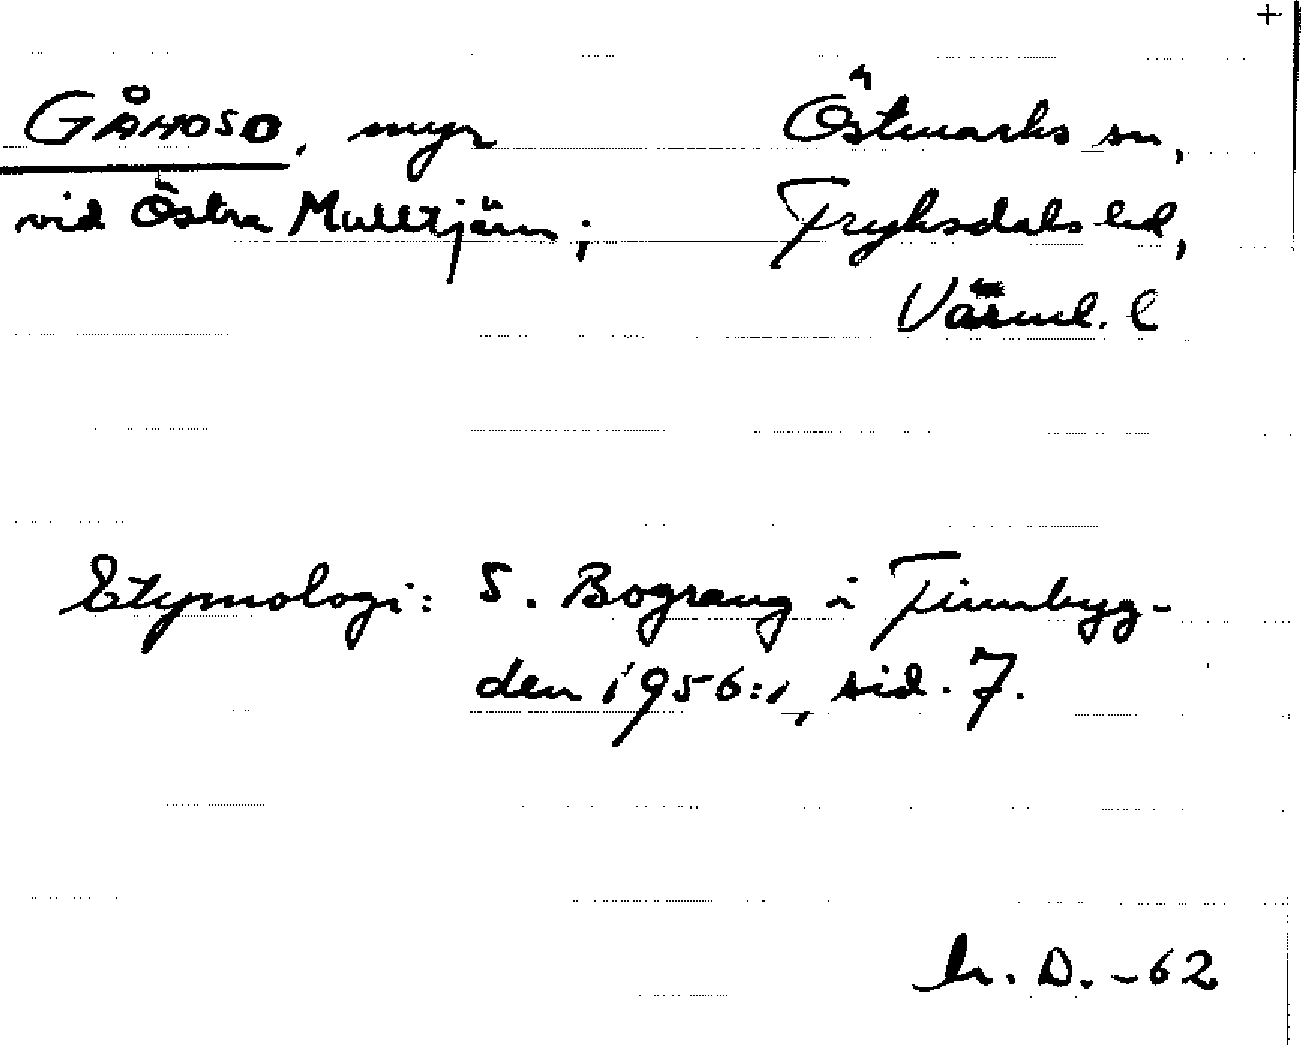 +
GÅHOSO, myr
vid Östra Mulltjärn;
Östmarks sn,
Fryksdals hd,
Värml. l
Etymologi: S. Bograng i Finnbyg-
den 1956:1, sid. 7.
D. -62